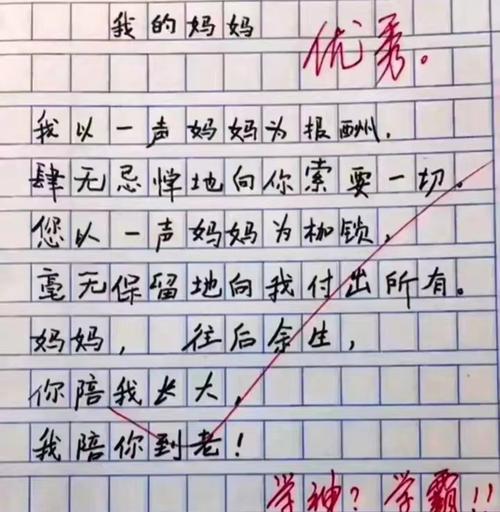 我的妈妈
优秀。
我以一声妈妈为报酬，
肆无忌惮地向你索要一切。
您以一声妈妈为枷锁，
毫无保留地向我付出所有。
妈妈， 往后余生，
你陪我长大，
我陪你到老！
学神？学霸！！